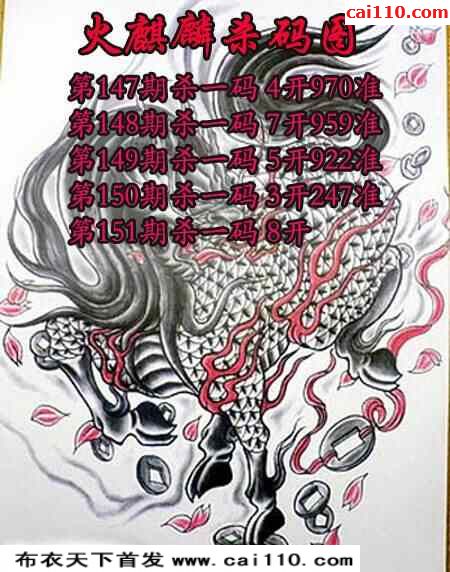 cai110.com
火麒麟杀码图
第147期杀一码 4开970准
第148期杀一码 7开959准
第149期杀一码 5开922准
第150期杀一码 3开247准
第151期杀一码 8开
布衣天下首发 www.cai110.com